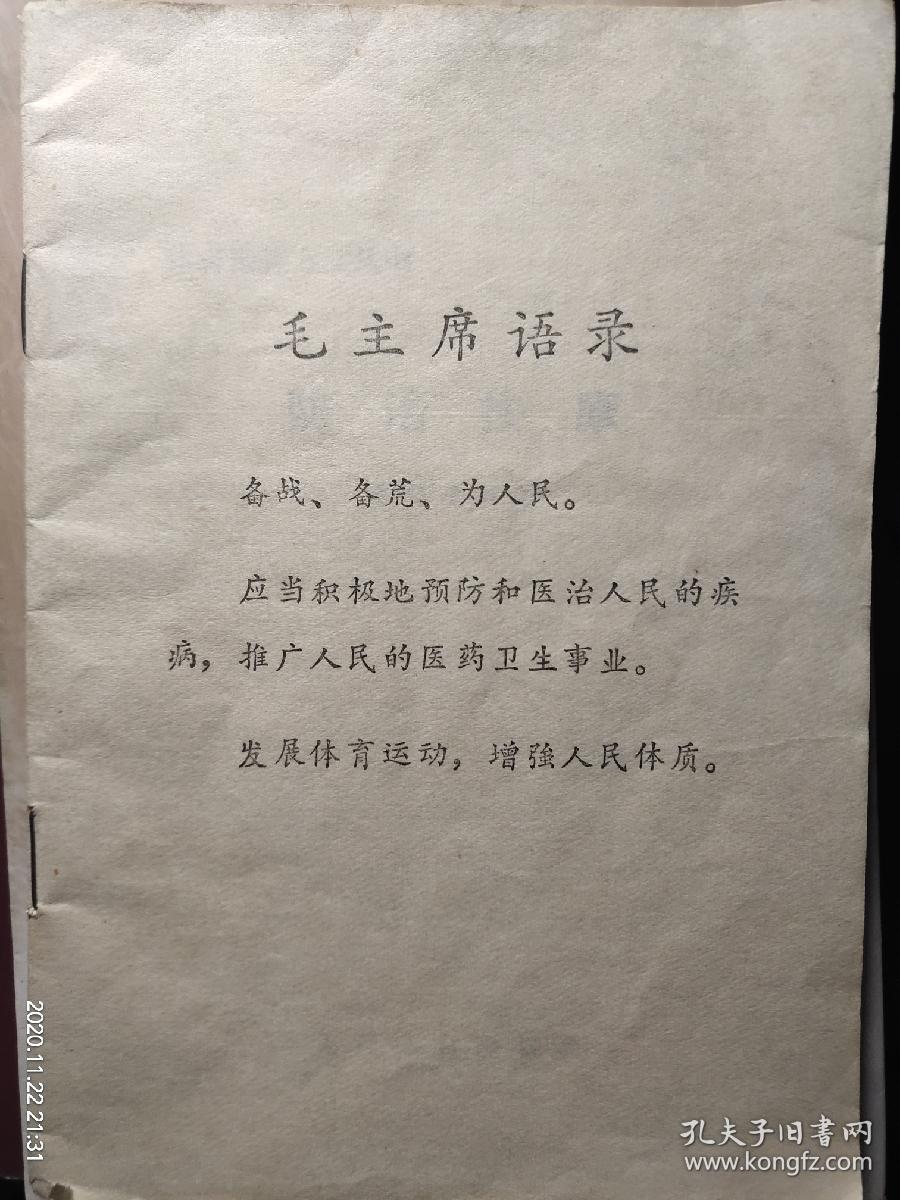 毛主席语录
备战、备荒、为人民。
应当积极地预防和医治人民的疾
病，推广人民的医药卫生事业。
发展体育运动，增強人民体质。
2020.11.22 21:31
孔夫子旧书网
www.kongfz.com